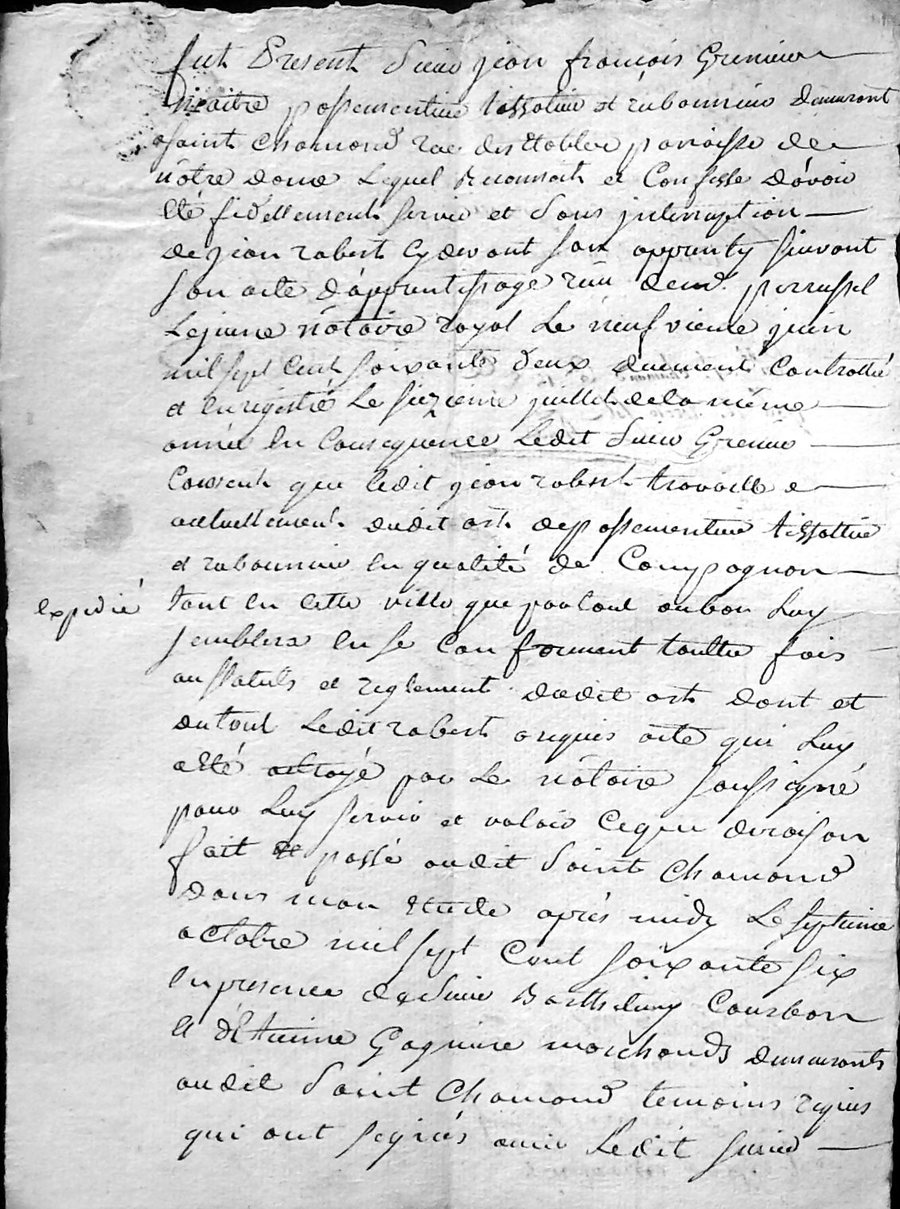 fut Present Sieur jean françois Grenier
maitre possementier tissottier et rubannier demurant
a saint chamond rue des Stables parroisse de
nôtre dame Lequel Reconnait et Confesse d'avoir
Eté fidellement servie et sans jnterruption
de jean robert cy devant son apprenty suivant
son acte d'apprentissage reçu devt perrussel
Lejeune nôtaire royal Le neufvieme juin
mil sept Cent soixante deux duement Controllé
et Enregistré Le seizieme juillet de la même
année En Consequence Ledit Sieur Grenier
Consent que ledit jean robert travaille a
actuellement dudit art de possementier tissottier
et rubannier En qualité de Compagnon
Expedié
tant En cette ville que partout ou bon Luy
semblera En se Conformant touttes fois
au statuts et reglement dudit art dont et
du tout Ledit robert a requis acte qui Luy
a Eté octroyé par Le nôtaire soussigné
pour Luy servir et valoir Ceque de raison
fait et passé audit Saint Chamond
dans mon Etude aprés midy Le septieme
octobre mil sept Cent soixante six
En presence de Sieur Barthelemy Courbon
et d'Etienne Gaquiere marchands demeurants
audit Saint Chamond temoins requis
qui ont signés avec Ledit Sieur